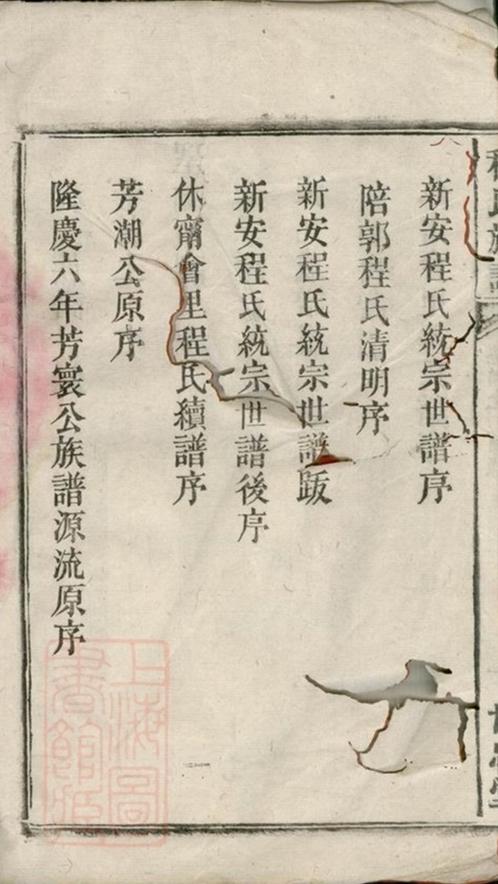 新安程氏統宗世譜序
陪郭程氏清明序
新安程氏統宗世譜跋
新安程氏統宗世譜後序
休甯會里程氏續譜序
芳潮公原序
隆慶六年芳寰公族譜源流原序
上海圖
書館